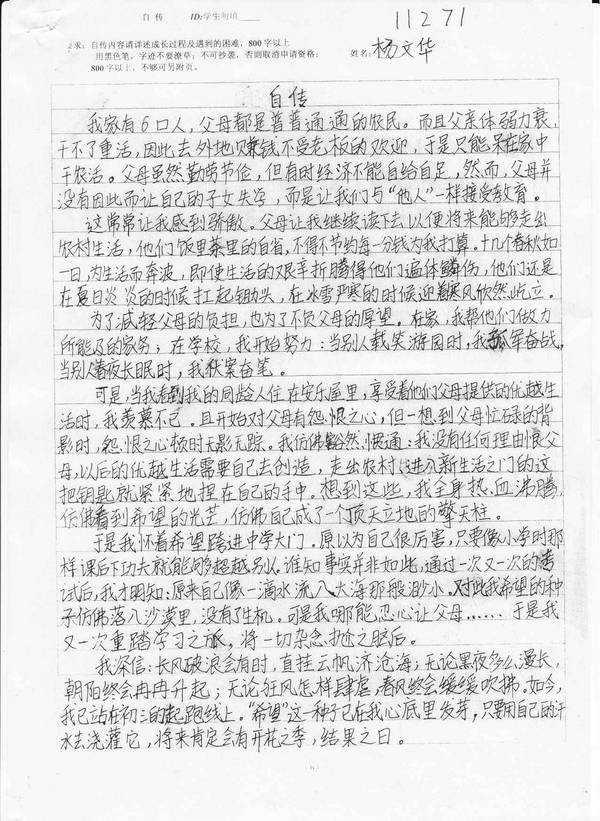 自 传 ID:学生勿填____
11271
要求：自传内容请详述成长过程及遇到的困难，800字以上
用黑色笔，字迹不要潦草；不可抄袭，否则取消申请资格；
800字以上，不够可另附页。
姓名：杨文华
自传
我家有6口人，父母都是普普通通的农民。而且父亲体弱力衰，
干不了重活，因此去外地赚钱不受老板的欢迎，于是只能呆在家中
干农活。父母虽然勤劳节俭，但有时经济不能自给自足，然而，父母并
没有因此而让自己的子女失学，而是让我们与“他人”一样接受教育。
这常常让我感到骄傲。父母让我继续读下去以便将来能够走出
农村生活，他们饭里菜里的自省，不得不节约每一分钱为我打算。十几个春秋如
一日，为生活而奔波，即使生活的艰辛折腾得他们遍体鳞伤，他们还是
在夏日炎炎的时候扛起锄头，在冰雪严寒的时候迎着寒风欣然屹立。
为了减轻父母的负担，也为了不负父母的厚望。在家，我帮他们做力
所能及的家务；在学校，我开始努力：当别人载笑游园时，我孤军奋战，
当别人着夜长眠时，我伏案奋笔。
可是，当我看到我的同龄人住在安乐屋里，享受着他们父母提供的优越生
活时，我羡慕不已。且开始对父母有怨恨之心，但一想到父母忙碌的背
影时，怨恨之心顿时无影无踪。我仿佛豁然惯通：我没有任何理由恨父
母，以后的优越生活需要自己去创造，走出农村、进入新生活之门的这
把钥匙就紧紧地捏在自己的手中。想到这些，我全身热血沸腾，
仿佛看到希望的光芒，仿佛自己成了一个顶天立地的擎天柱。
于是我怀着希望跨进中学大门。原以为自己很厉害，只要像小学时那
样课后下功夫就能够超越别人。谁知事实并非如此，通过一次又一次的考
试后，我才明知：原来自己像一滴水流入大海那般渺小。对此我希望的种
子仿佛落入沙漠里，没有了生机。可是我哪能忍心让父母……于是我
又一次重踏学习之旅，将一切杂念抛之脑后。
我深信：长风破浪会有时，直挂云帆济沧海；无论黑夜多么漫长，
朝阳终会冉冉升起；无论狂风怎样肆虐，春风终会缓缓吹拂。如今，
我已站在初三的起跑线上。“希望”这一种子已在我心底里发芽，只要用自己的汗
水去浇灌它，将来肯定会有开花之季，结果之日。